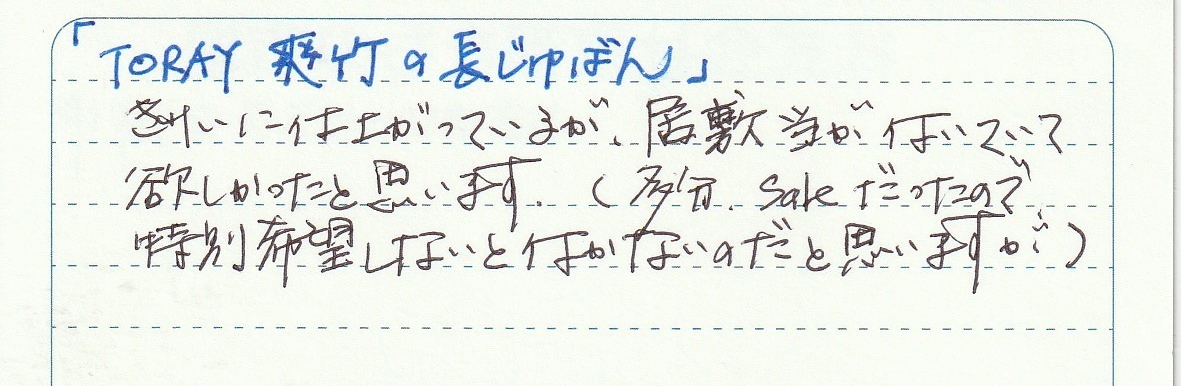 「TORAY 爽竹の長じゅばん」
きれいに仕上がっているが、居敷当が付いていて
欲しかったと思います。(多分、Saleだったので
特別希望しないと付かないのだと思いますが)